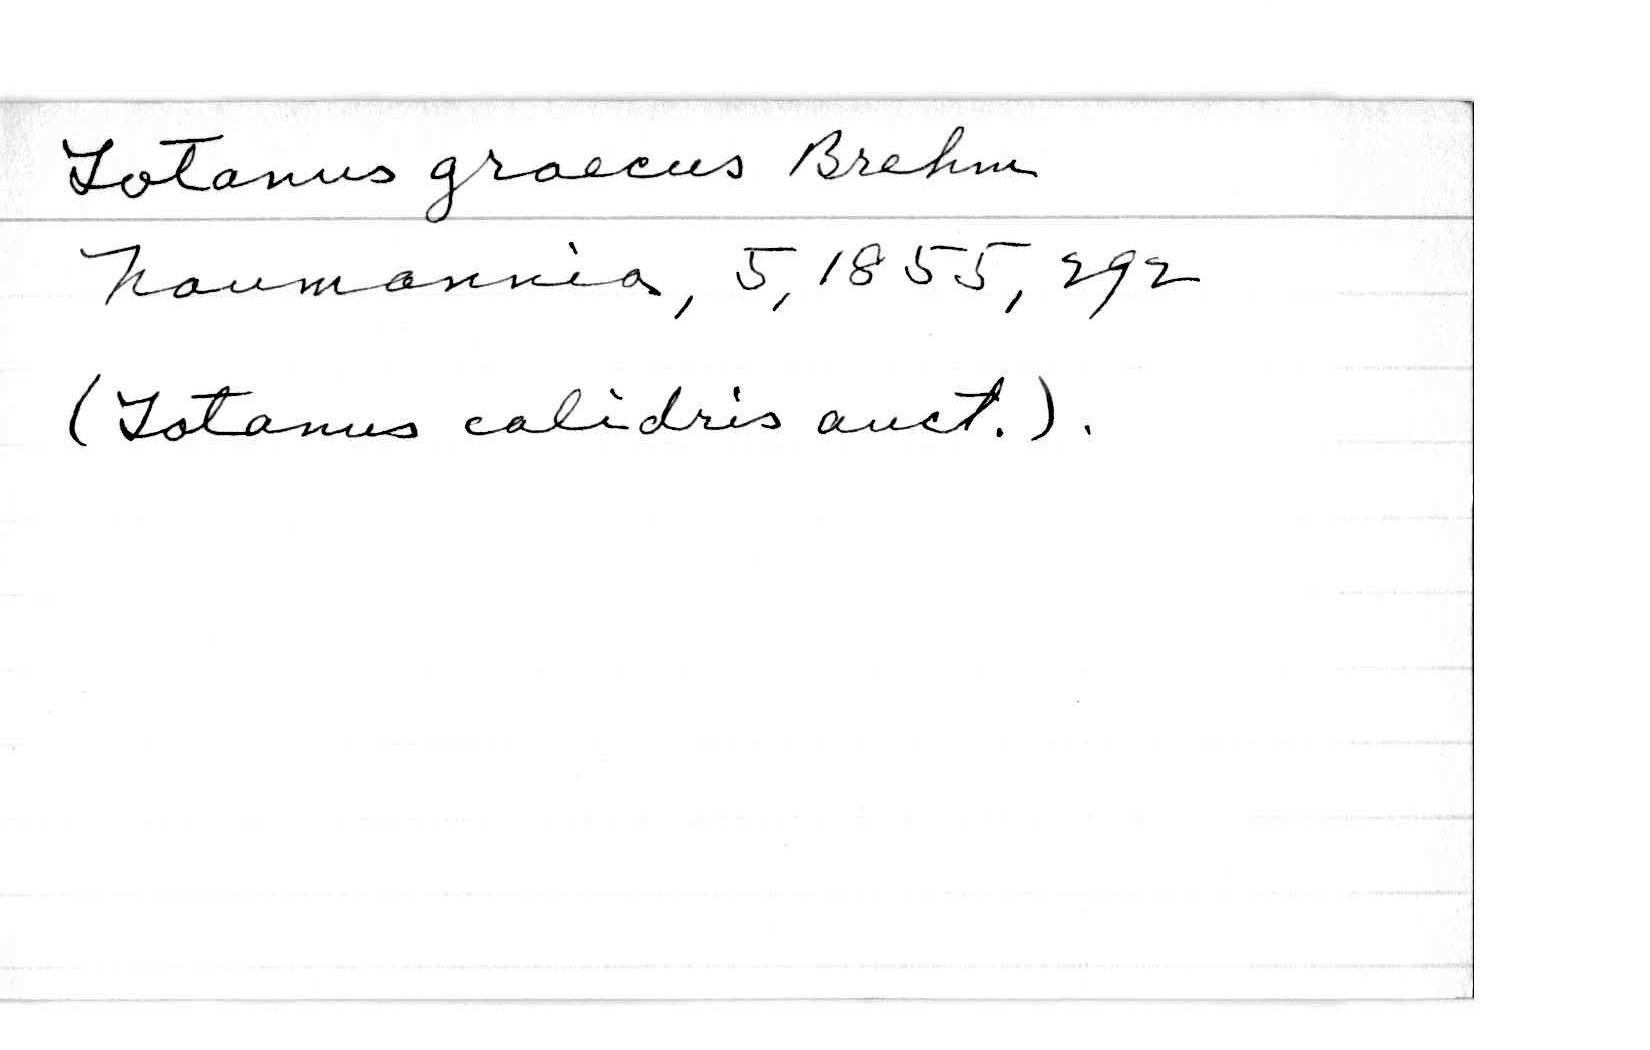 Totanus graecus Brehm
Naumannia, 5, 1855, 292
(Totanus calidris auct.).